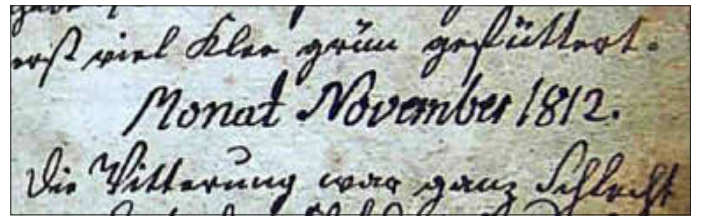 erst viel Klee grün gefüttert.
Monat November 1812.
Die Witterung war ganz Schlecht